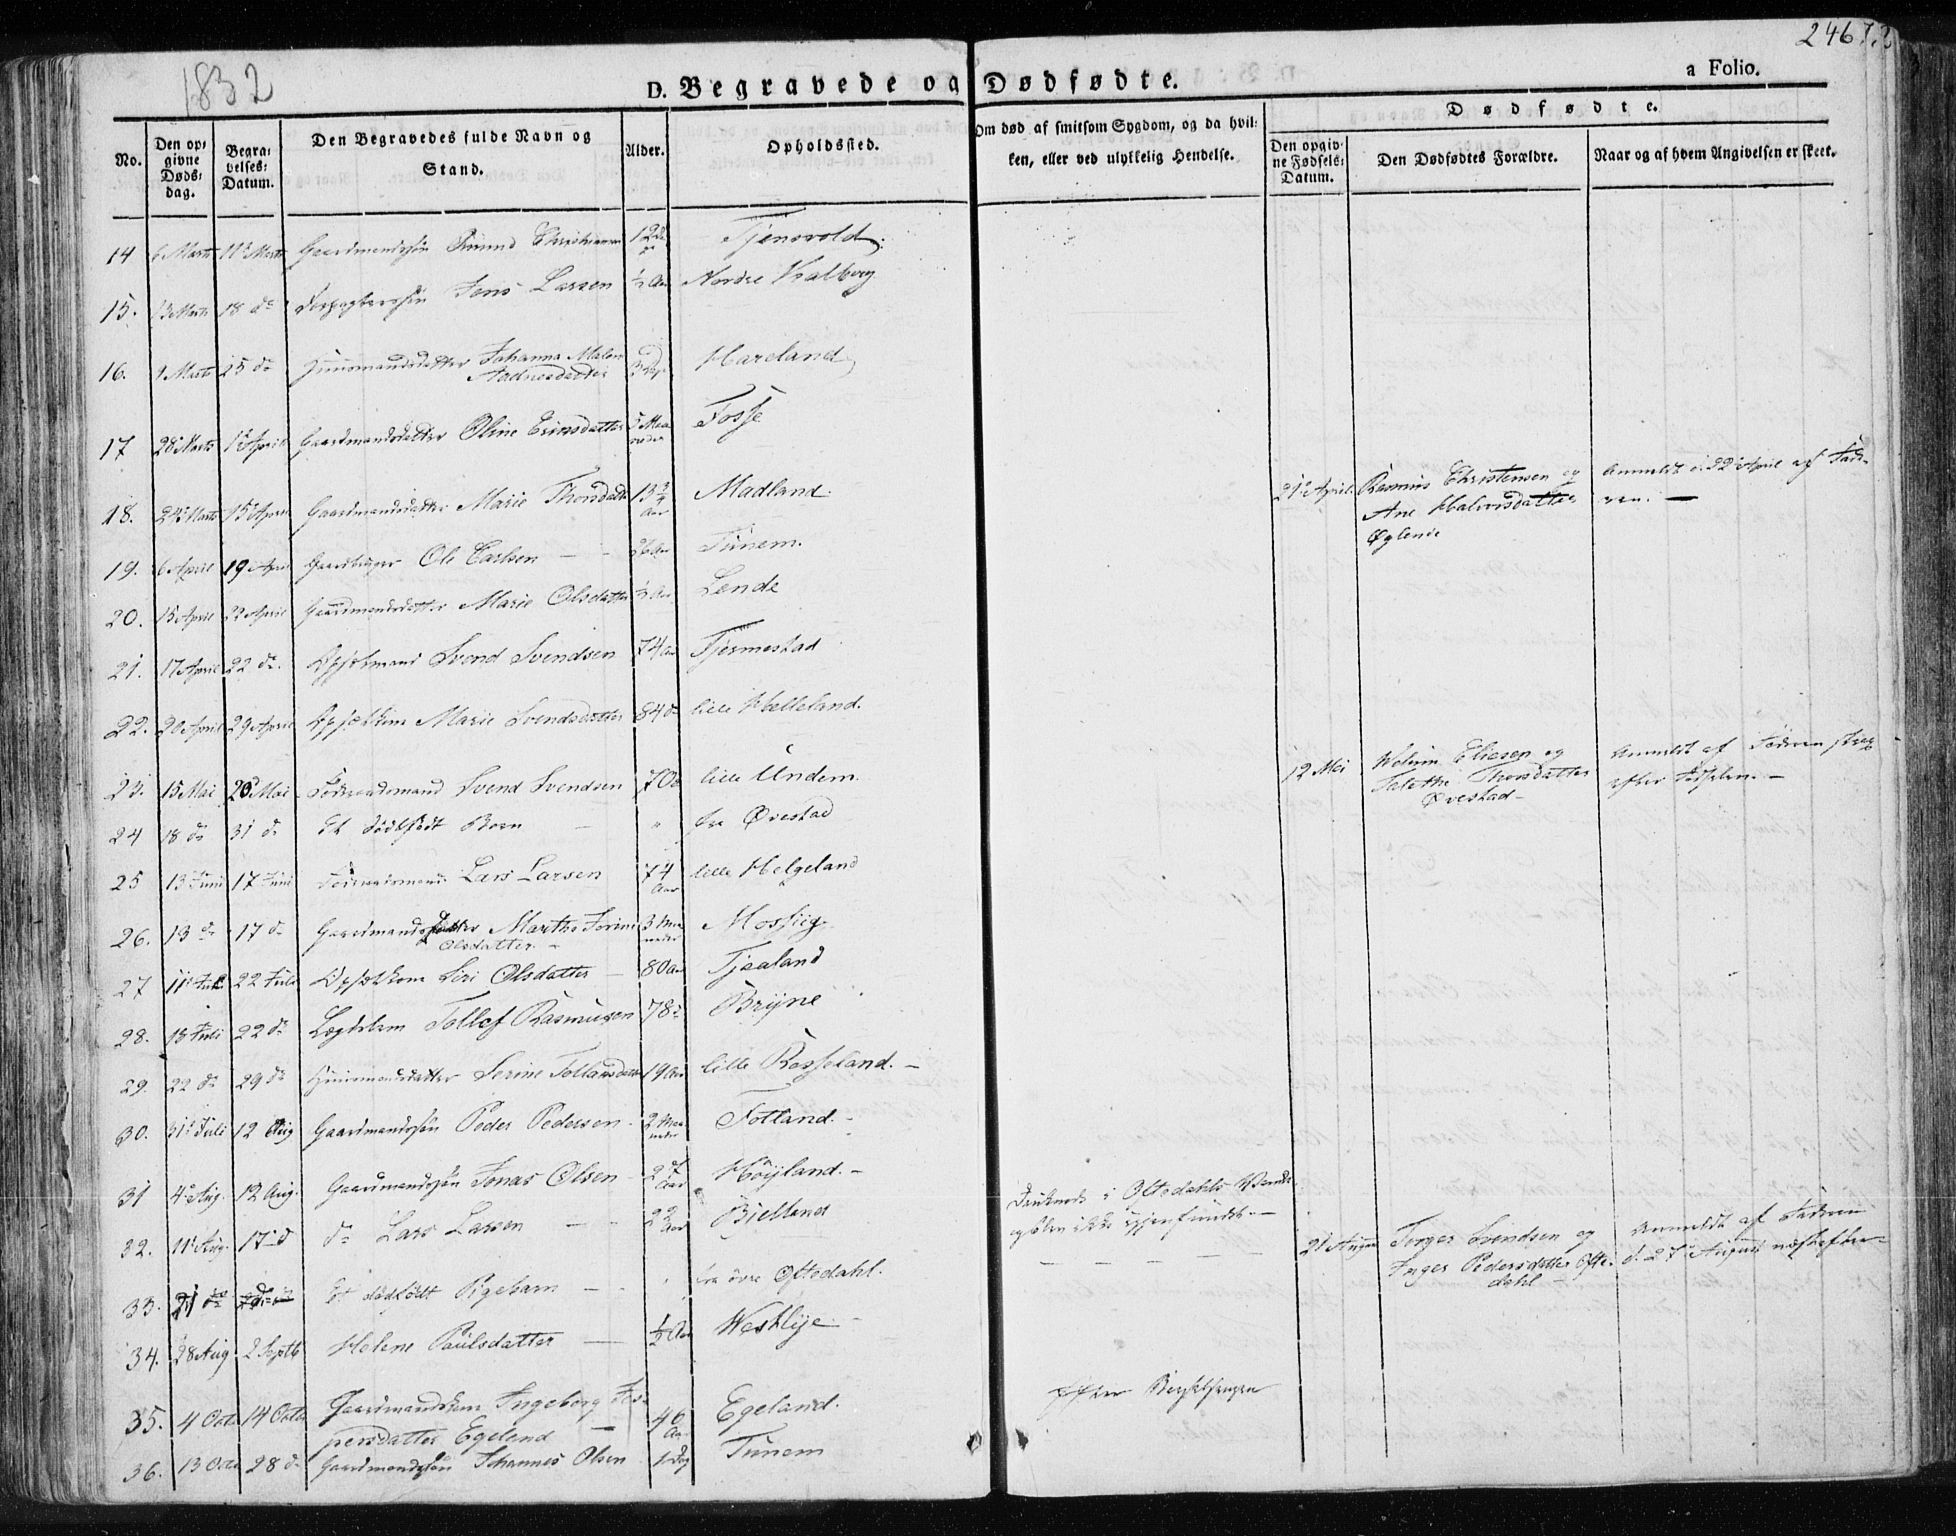 1832
246
D. Begravede og Dødfødte.
a Folio.
No.
Den op-
givne
Døds-
dag.
Begra-
velses-
Datum.
Den Begravedes fulde Navn og
Stand.
Alder.
Opholdssted.
Om død af smitsom Sygdom, og da hvil-
ken, eller ved ulykkelig Hendelse.
Dødfødte.
Den opgiv-
ne Fødsels-
Datum.
Den Dødfødtes Forældre.
Naar og af hvem Angivelsen er skeet.
14 6 Marts 11 Marts Gaardmandssøn
15. 13 Marts 18 do Jens Larsen ½ Aar Nordre Kalberg
16. 9 Marts 25 do Huusmandsdatter Johanna Malene Hareland
Aadnesdatter
17 28 Marts 1 April Gaardmandsdatter Oline Erinsdatter 5 Maa- Fosse
neder
18. 24 Marts 15 April Gaardmandsdatter Marie 13 Madland.
Aar
21 April Rasmus Christensen og
Ane Halvorsdatter
Øglende
Anmeldt d. 22 April af Fade-
ren. —
19. 6 April 19 April Ole Carlsen — — 26 Aar Tunem.
20. 15 April 22 April Gaardmandsdatter Marie Olsdatter Lende
21. 17 April 22 do. Svend Svendsen 74 Aar Tjermestad
22. 20 April 29 April Marie Svendsdatter 84 do lille Helleland.
23. 15 Mai 26 Mai Føderaadsmand Svend Svendsen 70 lille Undem.
12 Mai Eliasen og
Thorsdatter
Ørestad —
Anmeldt af Faderen strax
efter Fødselen. —
24 18 do 31 do Et dødfødt Barn — " fra Ørestad
25 13 Juni 17 Juni Føderaadsmand Lars Larsen 74 lille Helgeland
Aar
26. 13 do 17 do Gaardmandsdatter Marthe Serine 3 Maa- Mossiig.
Olsdatter. — neder
27 11 Juli 22 Juli Siri Olsdatter — 80 Aar Tjaaland
28. 13 Juli 22 do Lægdslem Tollef Rasmusen 78 Bryne
29. 22 do 29 do Huusmandsdatter Serine 19 Aar lille Rosseland. —
30. 31 Juli 12 Aug Gaardmandssøn Peder Pedersen. 2 Maa- Fotland. —
neder
31 4 Aug. 12 Aug. Gaardmandssøn Jonas Olsen — 27 Höyland. —
Aar
32. 11 Aug. 17 d do Lars Larsen — — 22 Bielland
Aar
Druknede i Oftedahls Vande
og blev ikke igjenfundet. —
21 August Torger Svendsen og
Inger Pedersdatter Ofte-
dahl —
Anmeldt af Faderen
d. 27 August næstefter —
33. 21 do Et dødfødt Pigebarn — — " fra övre Oftedahl.
34. 28 Aug 2 Septb Helene Paulsdatter — ½ Aar Westlye —
35. 4 Octo 14 Octo Gaardmandskone Ingeborg Jes- 46 Egeland.
persdatter Egeland — Aar
efter Barselsengen
36. 13 Octo 28 do Gaardmandssøn Johannes Olsen 1 Dag Tunem